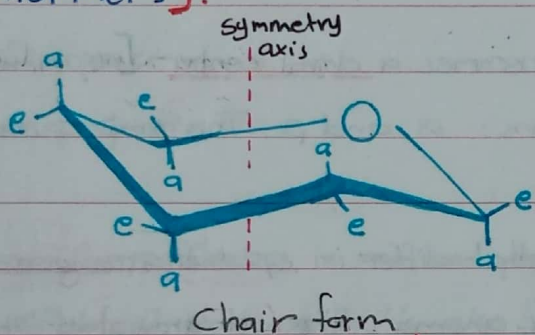 symmetry
axis
a
e
e
O
a
a
e
e
e
a
a
Chair form